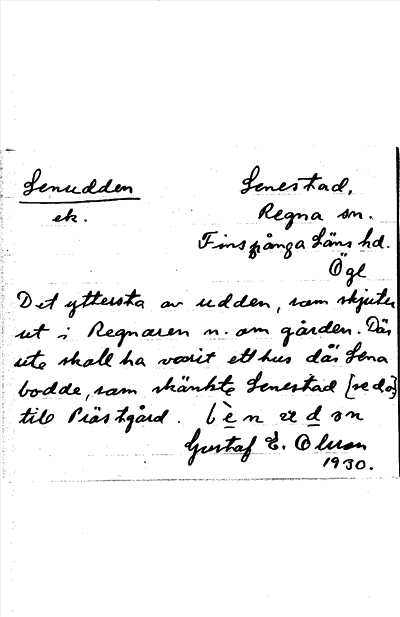 Lenudden
ek.
Lenestad,
Regna sn.
Finspånga Läns hd.
Ögl
Det yttersta av udden, som skjuter
ut i Regnaren n. om gården. Där
ute skall ha varit ett hus där Lena
bodde, som skänkte Lenestad [se d.o]
till Prästgård. lènudən
Gustaf E. Olsson
1930.